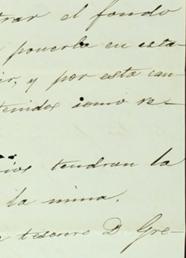 trar el fondo
ponerla en esta-
ir, y por esta cau
tenidos como re-
ios tendran la
la mina.
tesorero D. Gre-